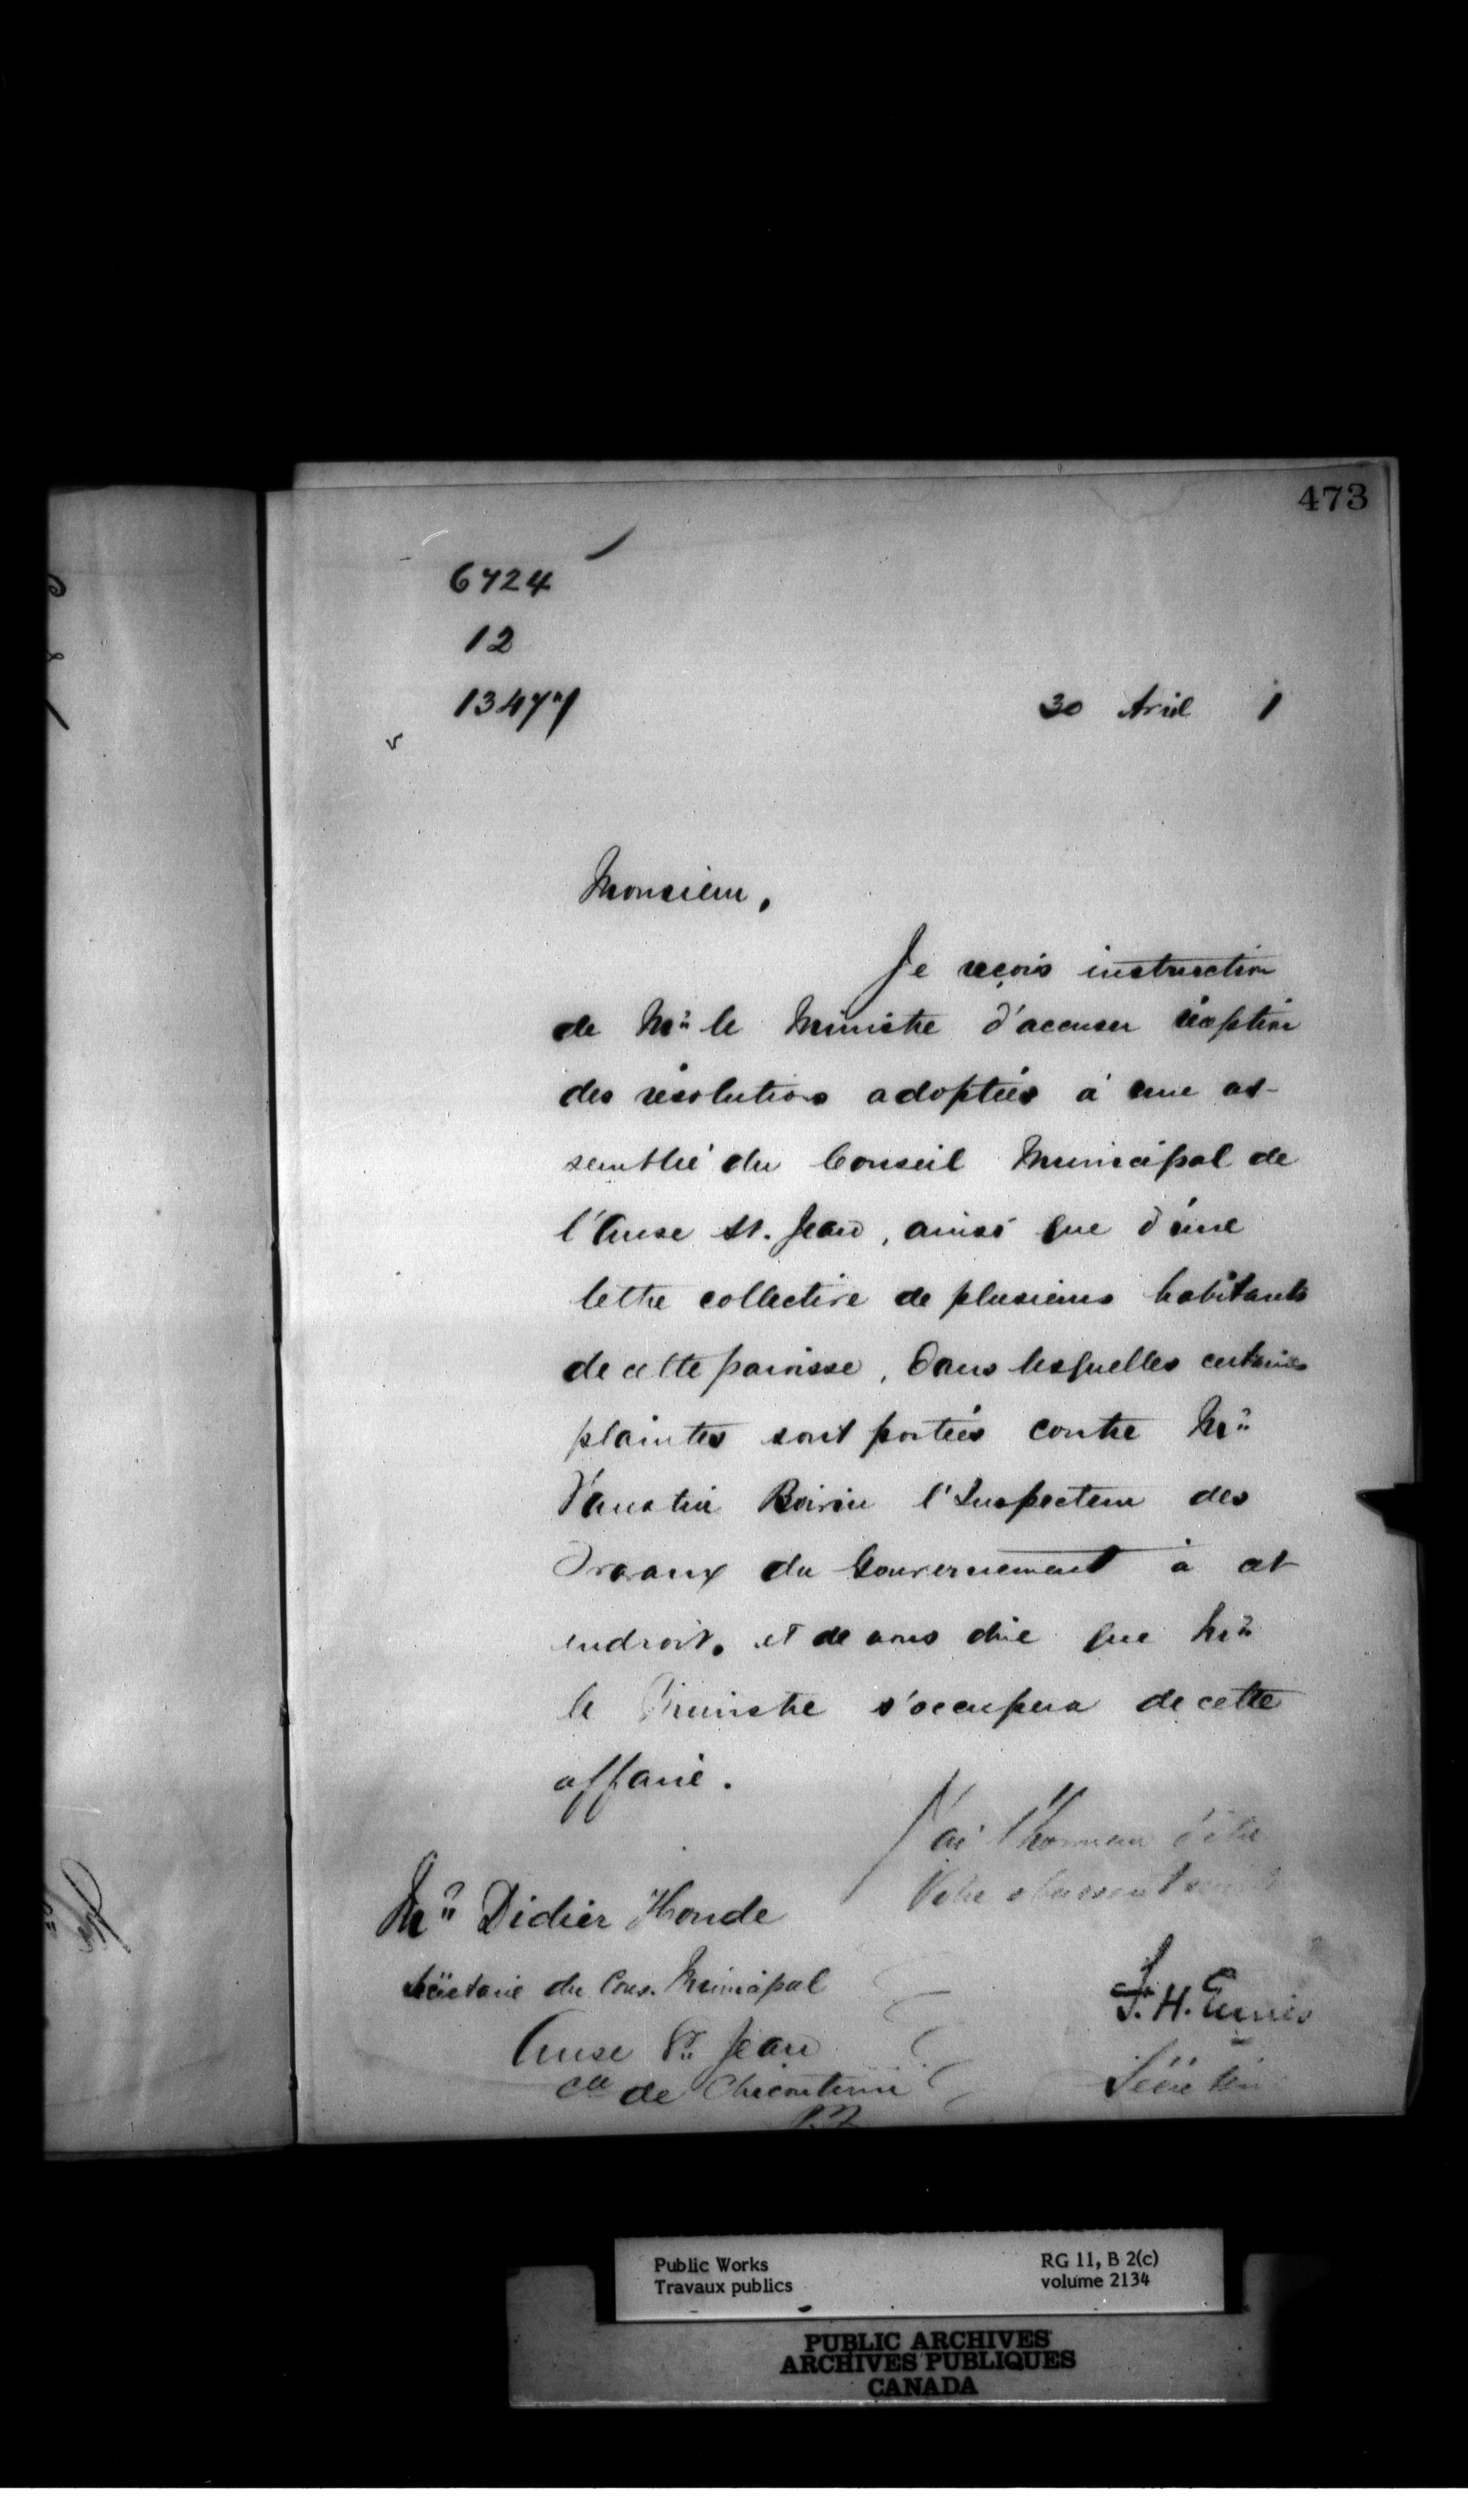 473
6724
12
13477
30 Avril 1
Monsieur,
Je reçois instruction
de Mr. le Ministre d'accuser réception
des résolutions adoptées à une as-
semblée du Conseil Municipal de
l'Anse St. Jean, ainsi que d'une
lettre collective de plusieurs habitants
de cette paroisse, dans lesquelles certaines
plaintes sont portées contre Mr.
Faustin Boivin l'Inspecteur des
Travaux du Gouvernement à cet
endroit, et de vous dire que Mr.
le Ministre s'occupera de cette
affaire.
J'ai l'honneur d'être
Votre obéissant
Mr. Didier Houde
Secrétaire du Cons. Municipal
Anse St. Jean
Cté de Chicoutimi
F. H. Ennis
Secrétaire
Public Works
Travaux publics
RG 11, B 2(c)
volume 2134
PUBLIC ARCHIVES
ARCHIVES PUBLIQUES
CANADA